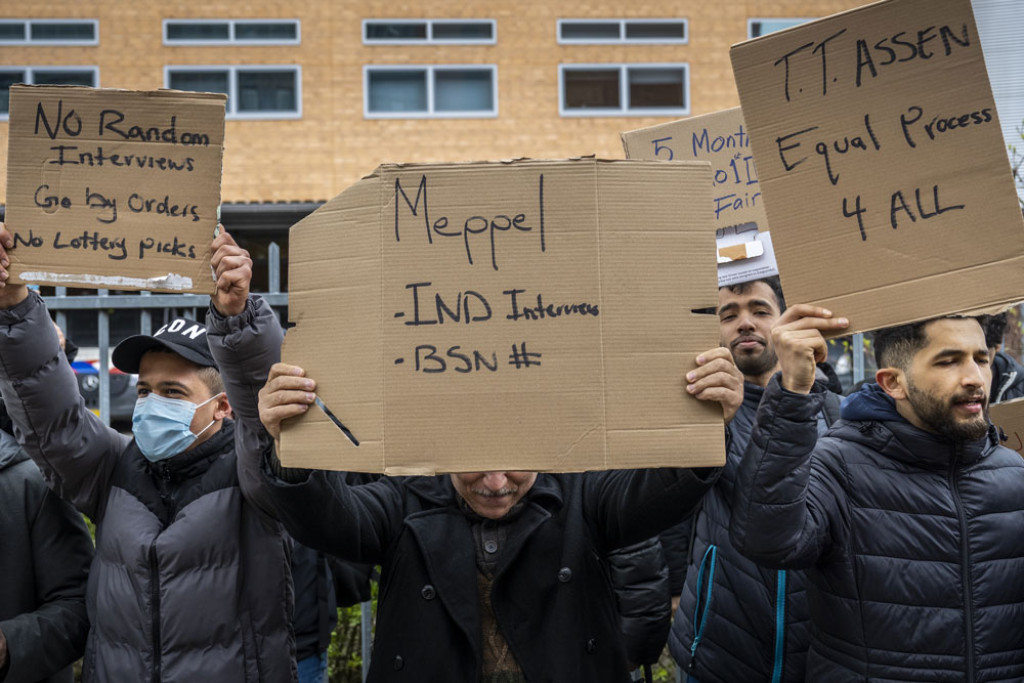 No Random
Interviews
Go by Orders
No Lottery picks
Meppel
-IND Interviews
-BSN #
5 Month
to 1st
Fair
T.T. ASSEN
Equal Process
4 ALL